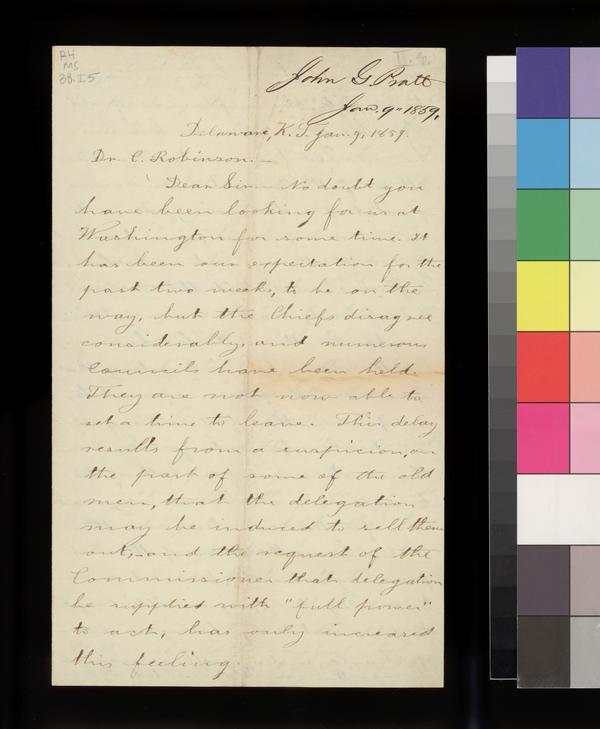 RH
MS
38.I5
John G. Pratt
Jan. 9" 1859,
Delaware, K. T. Jan. 9, 1859.
Dr. C. Robinson. —
Dear Sir. — No doubt you
have been looking for us at
Washington for some time. It
has been our expectation for the
past two weeks, to be on the
way, but the Chiefs disagree
considerably, and numerous
Councils have been held.
They are not now able to
set a time to leave. This delay
results from a suspicion, on
the part of some of the old
men, that the delegation
may be induced to sell them
out, – and the request of the
Commissioner that delegation
be supplied with "full power"
to act, has only increased
this feeling.